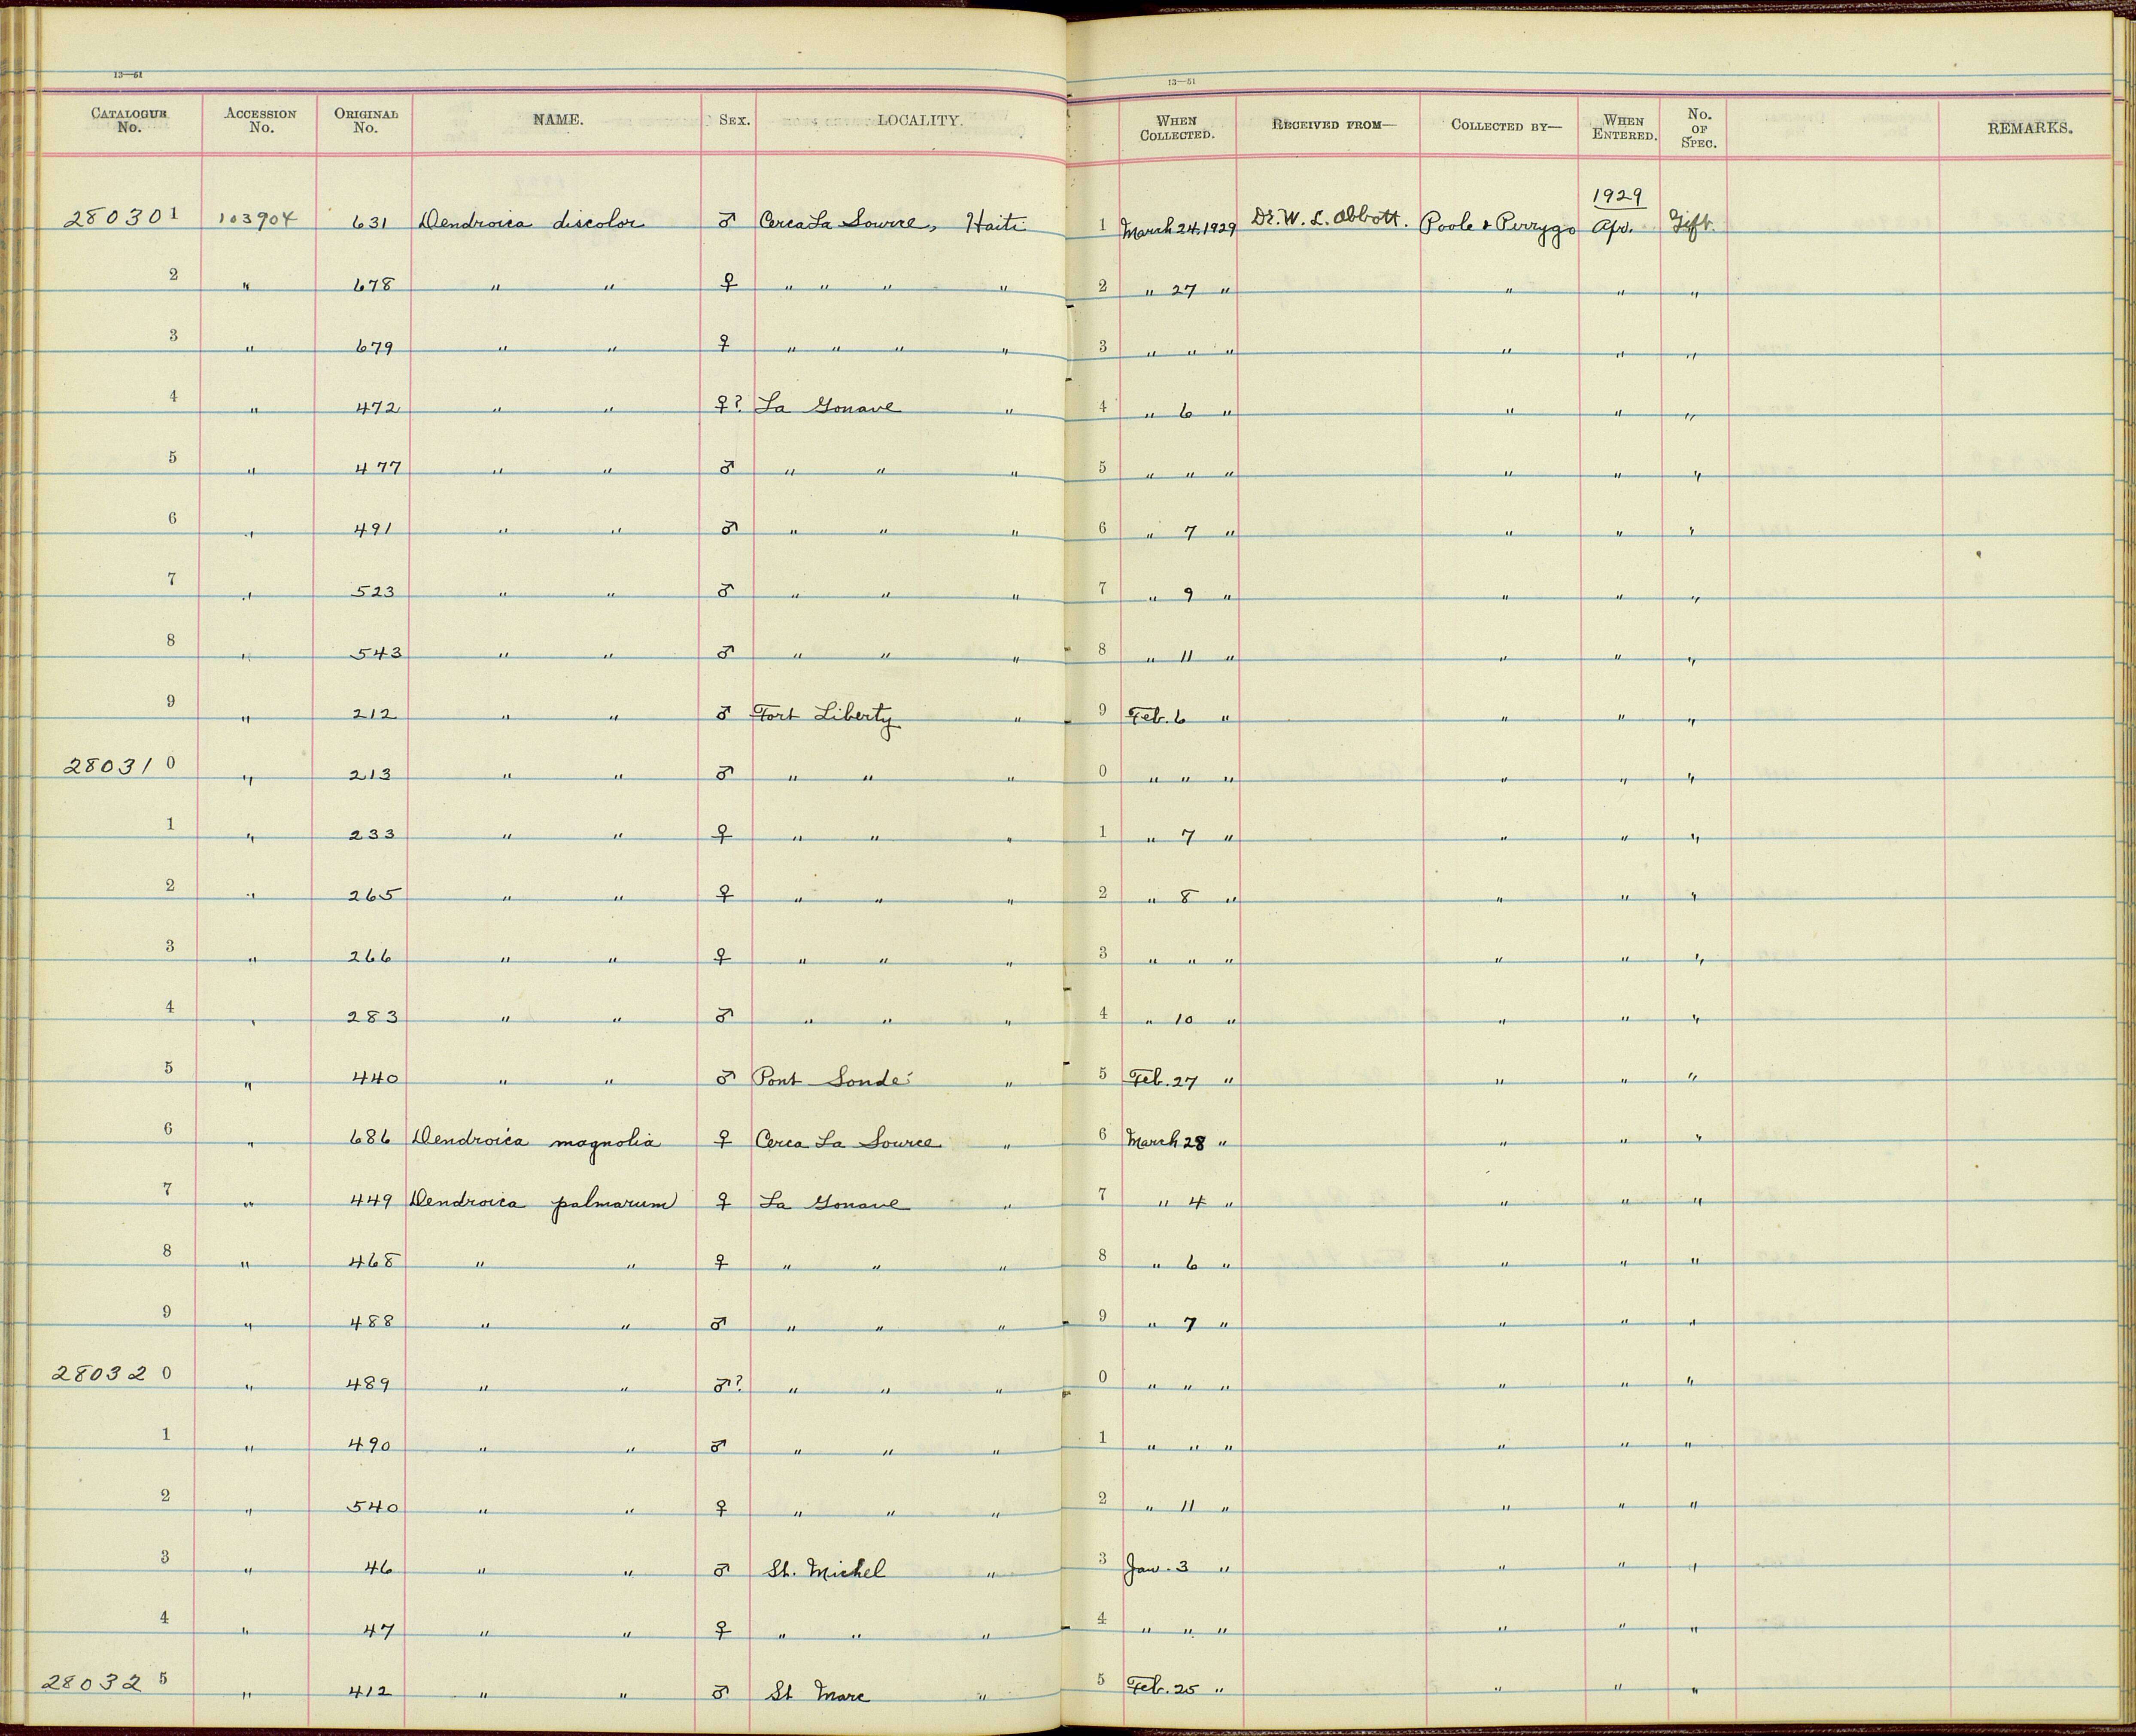 13—51
13—51
CATALOGUE No. ACCESSION No. ORIGINAL No. NAME. SEX. LOCALITY. WHEN COLLECTED. RECEIVED FROM— COLLECTED BY— WHEN ENTERED. No. OF SPEC. REMARKS.
1929
280301 103904 631 Dendroica discolor ♂ Cerca La Source, Haiti 1 March 24, 1929 Dr. W. L. Abbott. Poole & Perrygo Apr. Gift.
2 " 678 " " ♀ " " " " 2 " 27 " " " "
3 " 679 " " ♀ " " " " 3 " " " " " "
4 " 472 " " ♀? La Gonave " 4 " 6 " " " "
5 " 477 " " ♂ " " " 5 " " " " " "
6 " 491 " " ♂ " " " 6 " 7 " " " "
7 " 523 " " ♂ " " " 7 " 9 " " " "
8 " 543 " " ♂ " " " 8 " 11 " " " "
9 " 212 " " ♂ Fort Liberty " 9 Feb. 6 " " " "
280310 " 213 " " ♂ " " " 0 " " " " " "
1 " 233 " " ♀ " " " 1 " 7 " " " "
2 " 265 " " ♀ " " " 2 " 8 " " " "
3 " 266 " " ♀ " " " 3 " " " " " "
4 " 283 " " ♂ " " " 4 " 10 " " " "
5 " 440 " " ♂ Pont Sondé " 5 Feb. 27 " " " "
6 " 686 Dendroica magnolia ♀ Cerca La Source " 6 March 28 " " " "
7 " 449 Dendroica palmarum ♀ La Gonave " 7 " 4 " " " "
8 " 468 " " ♀ " " " 8 " 6 " " " "
9 " 488 " " ♂ " " " 9 " 7 " " " "
280320 " 489 " " ♂? " " " 0 " " " " " "
1 " 490 " " ♂ " " " 1 " " " " " "
2 " 540 " " ♀ " " " 2 " 11 " " " "
3 " 46 " " ♂ St. Michel " 3 Jan. 3 " " " "
4 " 47 " " ♀ " " " 4 " " " " " "
280325 " 412 " " ♂ St Marc " 5 Feb. 25 " " " "